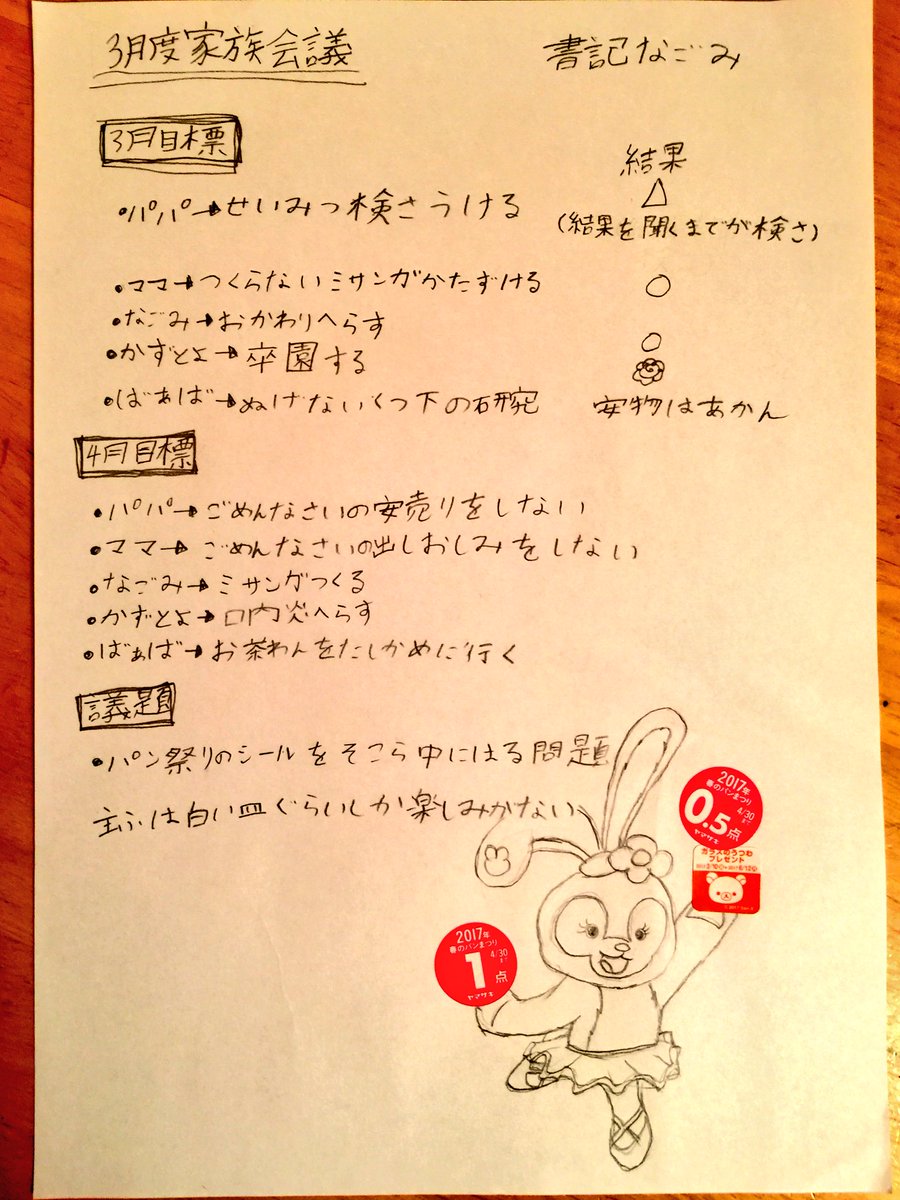 3月度家族会議 書記なごみ
3月目標
結果
・パパ→せいみつ検さうける △
(結果を聞くまでが検さ)
・ママ→つくらないミサンガかたずける ○
・なごみ→おかわりへらす ○
・かずとよ→卒園する
・ばぁば→ぬげないくつ下の研究 安物はあかん
4月目標
・パパ→ごめんなさいの安売りをしない
・ママ→ごめんなさいの出しおしみをしない
・なごみ→ミサンガつくる
・かずとよ→口内炎へらす
・ばぁば→お茶わんをたしかめに行く
議題
・パン祭りのシールをそこら中にはる問題
主ふは白い皿ぐらいしか楽しみがない
2017年
春のパンまつり
4/30まで
0.5点
ヤマザキ
プレゼント
2017年
春のパンまつり
4/30まで
1点
ヤマザキ